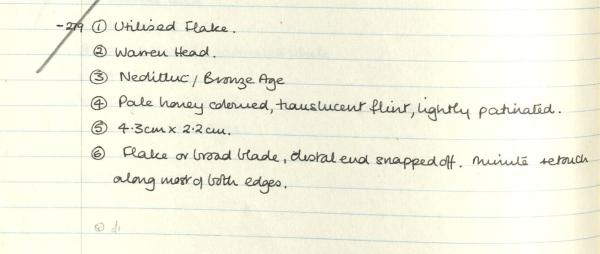 -279 ① Utilised Flake.
② Warren Head.
③ Neolithic / Bronze Age
④ Pale honey coloured, translucent flint, lightly patinated.
⑤ 4.3cm x 2.2cm.
⑥ Flake or broad blade, distal end snapped off. Minute retouch
along most of both edges.